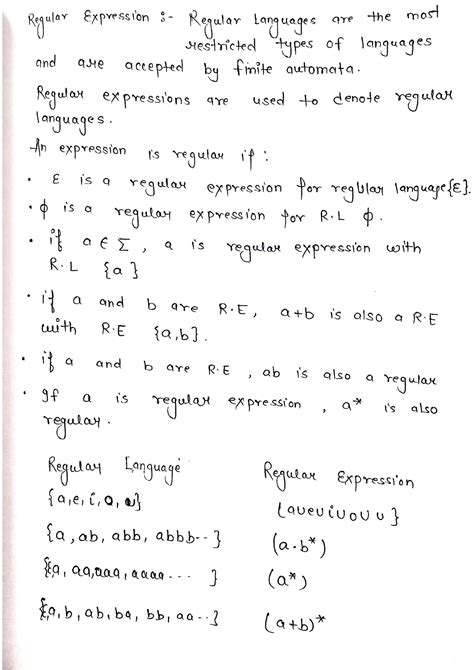 Regular Expression :- Regular Languages are the most
restricted types of languages
and are accepted by finite automata.
Regular expressions are used to denote regular
languages.
An expression is regular if :
• ε is a regular expression for regular language {ε}.
• ϕ is a regular expression for R.L ϕ.
• if a ∈ Σ, a is regular expression with
R.L {a}
• if a and b are R.E, a+b is also a R.E
with R.E {a,b}.
• if a and b are R.E, ab is also a regular
• If a is regular expression, a* is also
regular.
Regular Language Regular Expression
{a,e,i,o,u} (a∪e∪i∪o∪u}
{a, ab, abb, abbb--} (a.b*)
{ε,a, aa,aaa, aaaa --- } (a*)
{ε,a,b, ab, ba, bb, aa--} (a+b)*